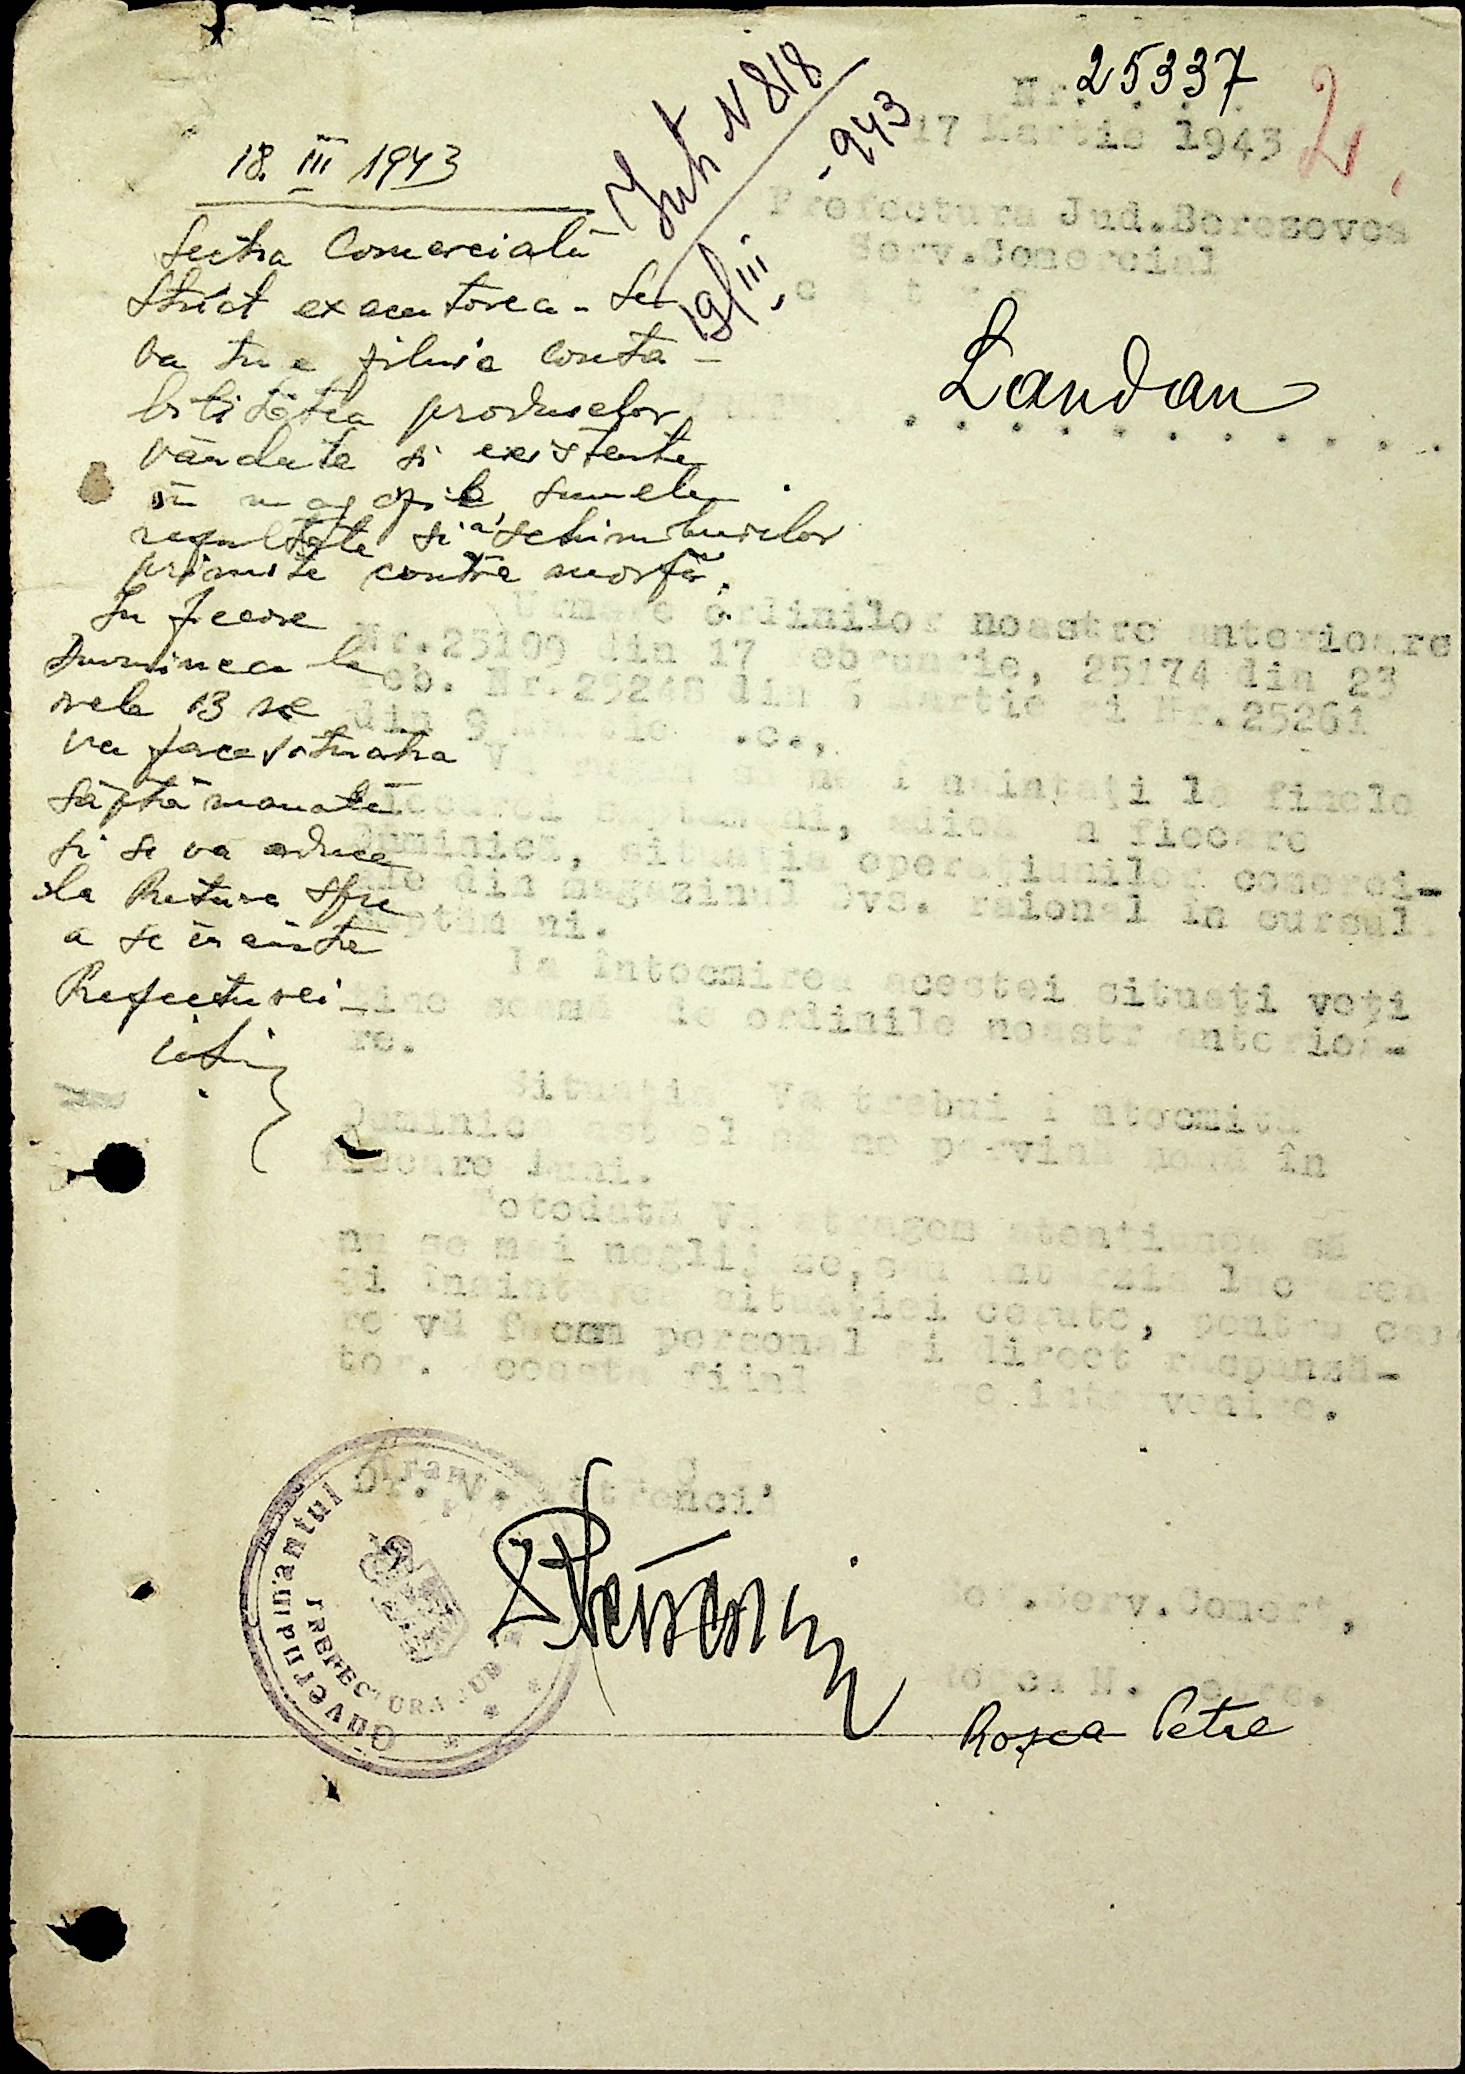 25337
Nr. . . .
17 Martie 1943
2.
Int. N 818
943
19/III
Prefectura Jud.Beresovca
Serv.Comercial
c t r e
Landau
. . . . . . . . . . .
18. III 1943
Secția Comercială
Strict executarea - Se
va ține zilnic conta-
bilitatea produselor
vândute și existente
în magazie, sumele
rezultate și a schimburilor
primite contra marfă.
In fiecare
Duminica la
orele 13 se
va face situatia
săptămanală
și se va aduce
la Pretura spre
a se înainta
Prefecturei
Urmare ordinilor noastre anterioare
Nr.25109 din 17 Februarie, 25174 din 23
Feb. Nr.25248 din Martie si Nr.25261
din 9 Martie .c.,
Vă rugăm să ne înaintați la finele
fiecarei săptămâni, adică în fiecare
Duminică, situația operațiunilor comerci-
ale din magazinul Dvs. raional în cursul
săptămâni.
La întocmirea acestei situați veți
ține seamă de ordinile noastre anterioa-
re.
Situația va trebui întocmită
Duminica astfel ca să ne parvină nouă în
fiecare Luni.
Totodată Vă atragem atențiunea să
nu se mai neglijeze, sau întârzia lucrarea
și înaintarea situației cerute, pentru ca-
re vă facem personal și direct răspunză-
tor. Aceasta fiind intervenire.
Dr. V.
Guvernamantul Tran
PREFECTURA JUD
Serv.Comert,
Roșca N. Petre.
Roșca Petre